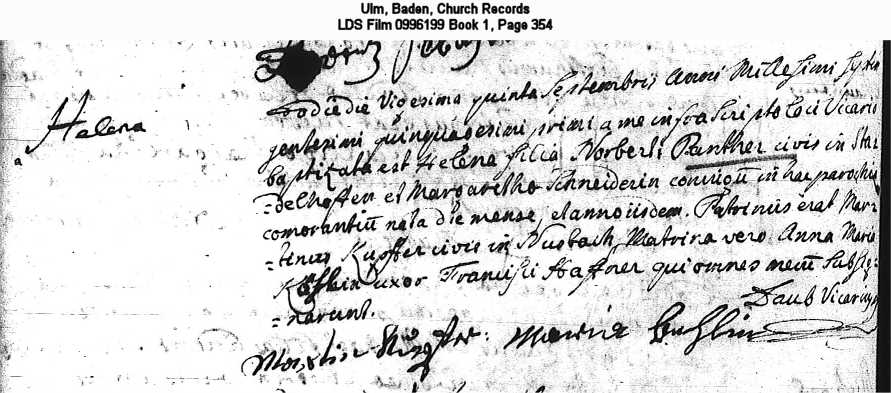 Ulm, Baden, Church Records
LDS Film 0996199 Book 1, Page 354
Helena
Hodie die Vigesima quinta Septembris Anni Millesimi septin
gentesimi quinquagesimi primi a me infra Scripto loci Vicario
baptizata est Helena filia Norberti Panther civis in Sta=
=delhoffen et Margarethae Schneiderin coniugū in hac parochia
comorantiū nata die mense, et anno iisdem. Patrinus erat Mar=
=tinus Kupffer civis in Nusbach, Matrina vero Anna Maria
uxor Francisci Haffner qui omnes mecū subsig=
=narunt.
Daub Vicarius
Martin
Maria